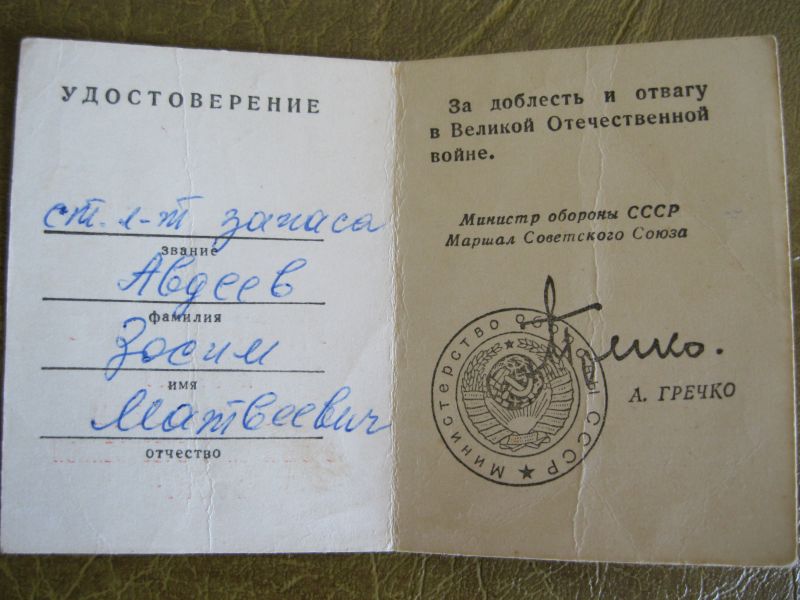 УДОСТОВЕРЕНИЕ
ст. л-т запаса
звание
Авдеев
фамилия
Зосим
имя
Матвеевич
отчество
За доблесть и отвагу
в Великой Отечественной
войне.
Министр обороны СССР
Маршал Советского Союза
Министерство обороны СССР
Гречко.
А. ГРЕЧКО